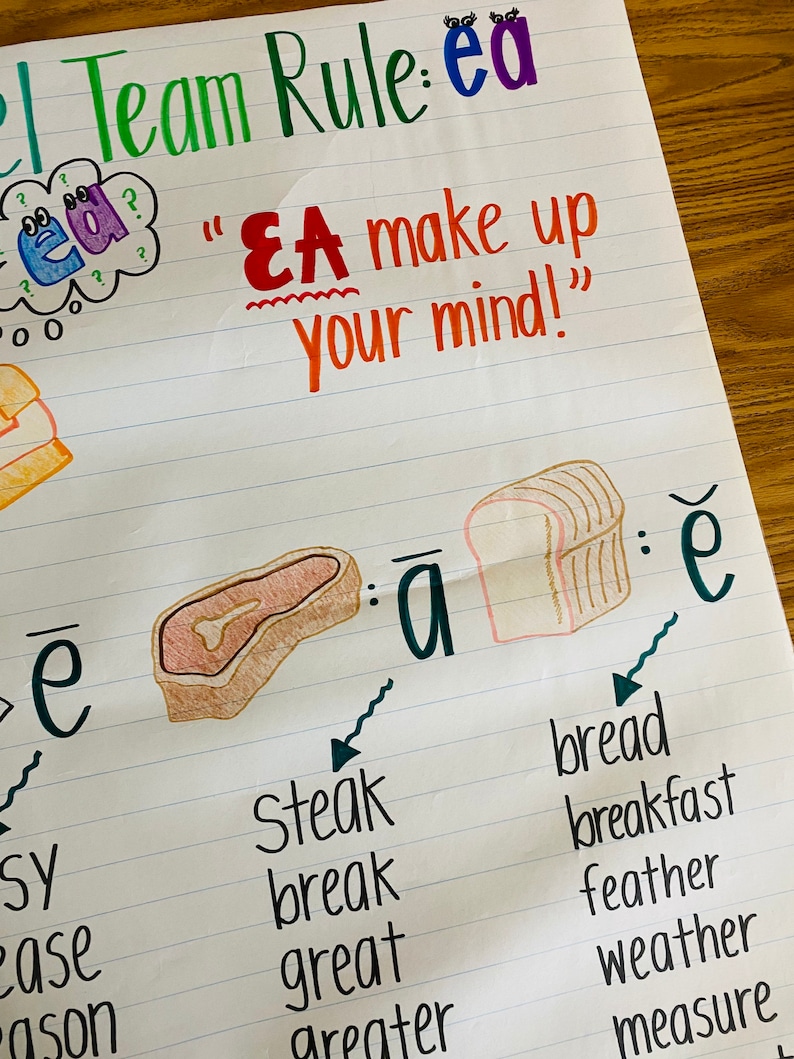 el Team Rule: ea
? ? ea ? ? ? ?
"EA make up
your mind!"
ē
: ā
: ĕ
sy
ease
eason
steak
break
great
greater
bread
breakfast
feather
weather
measure